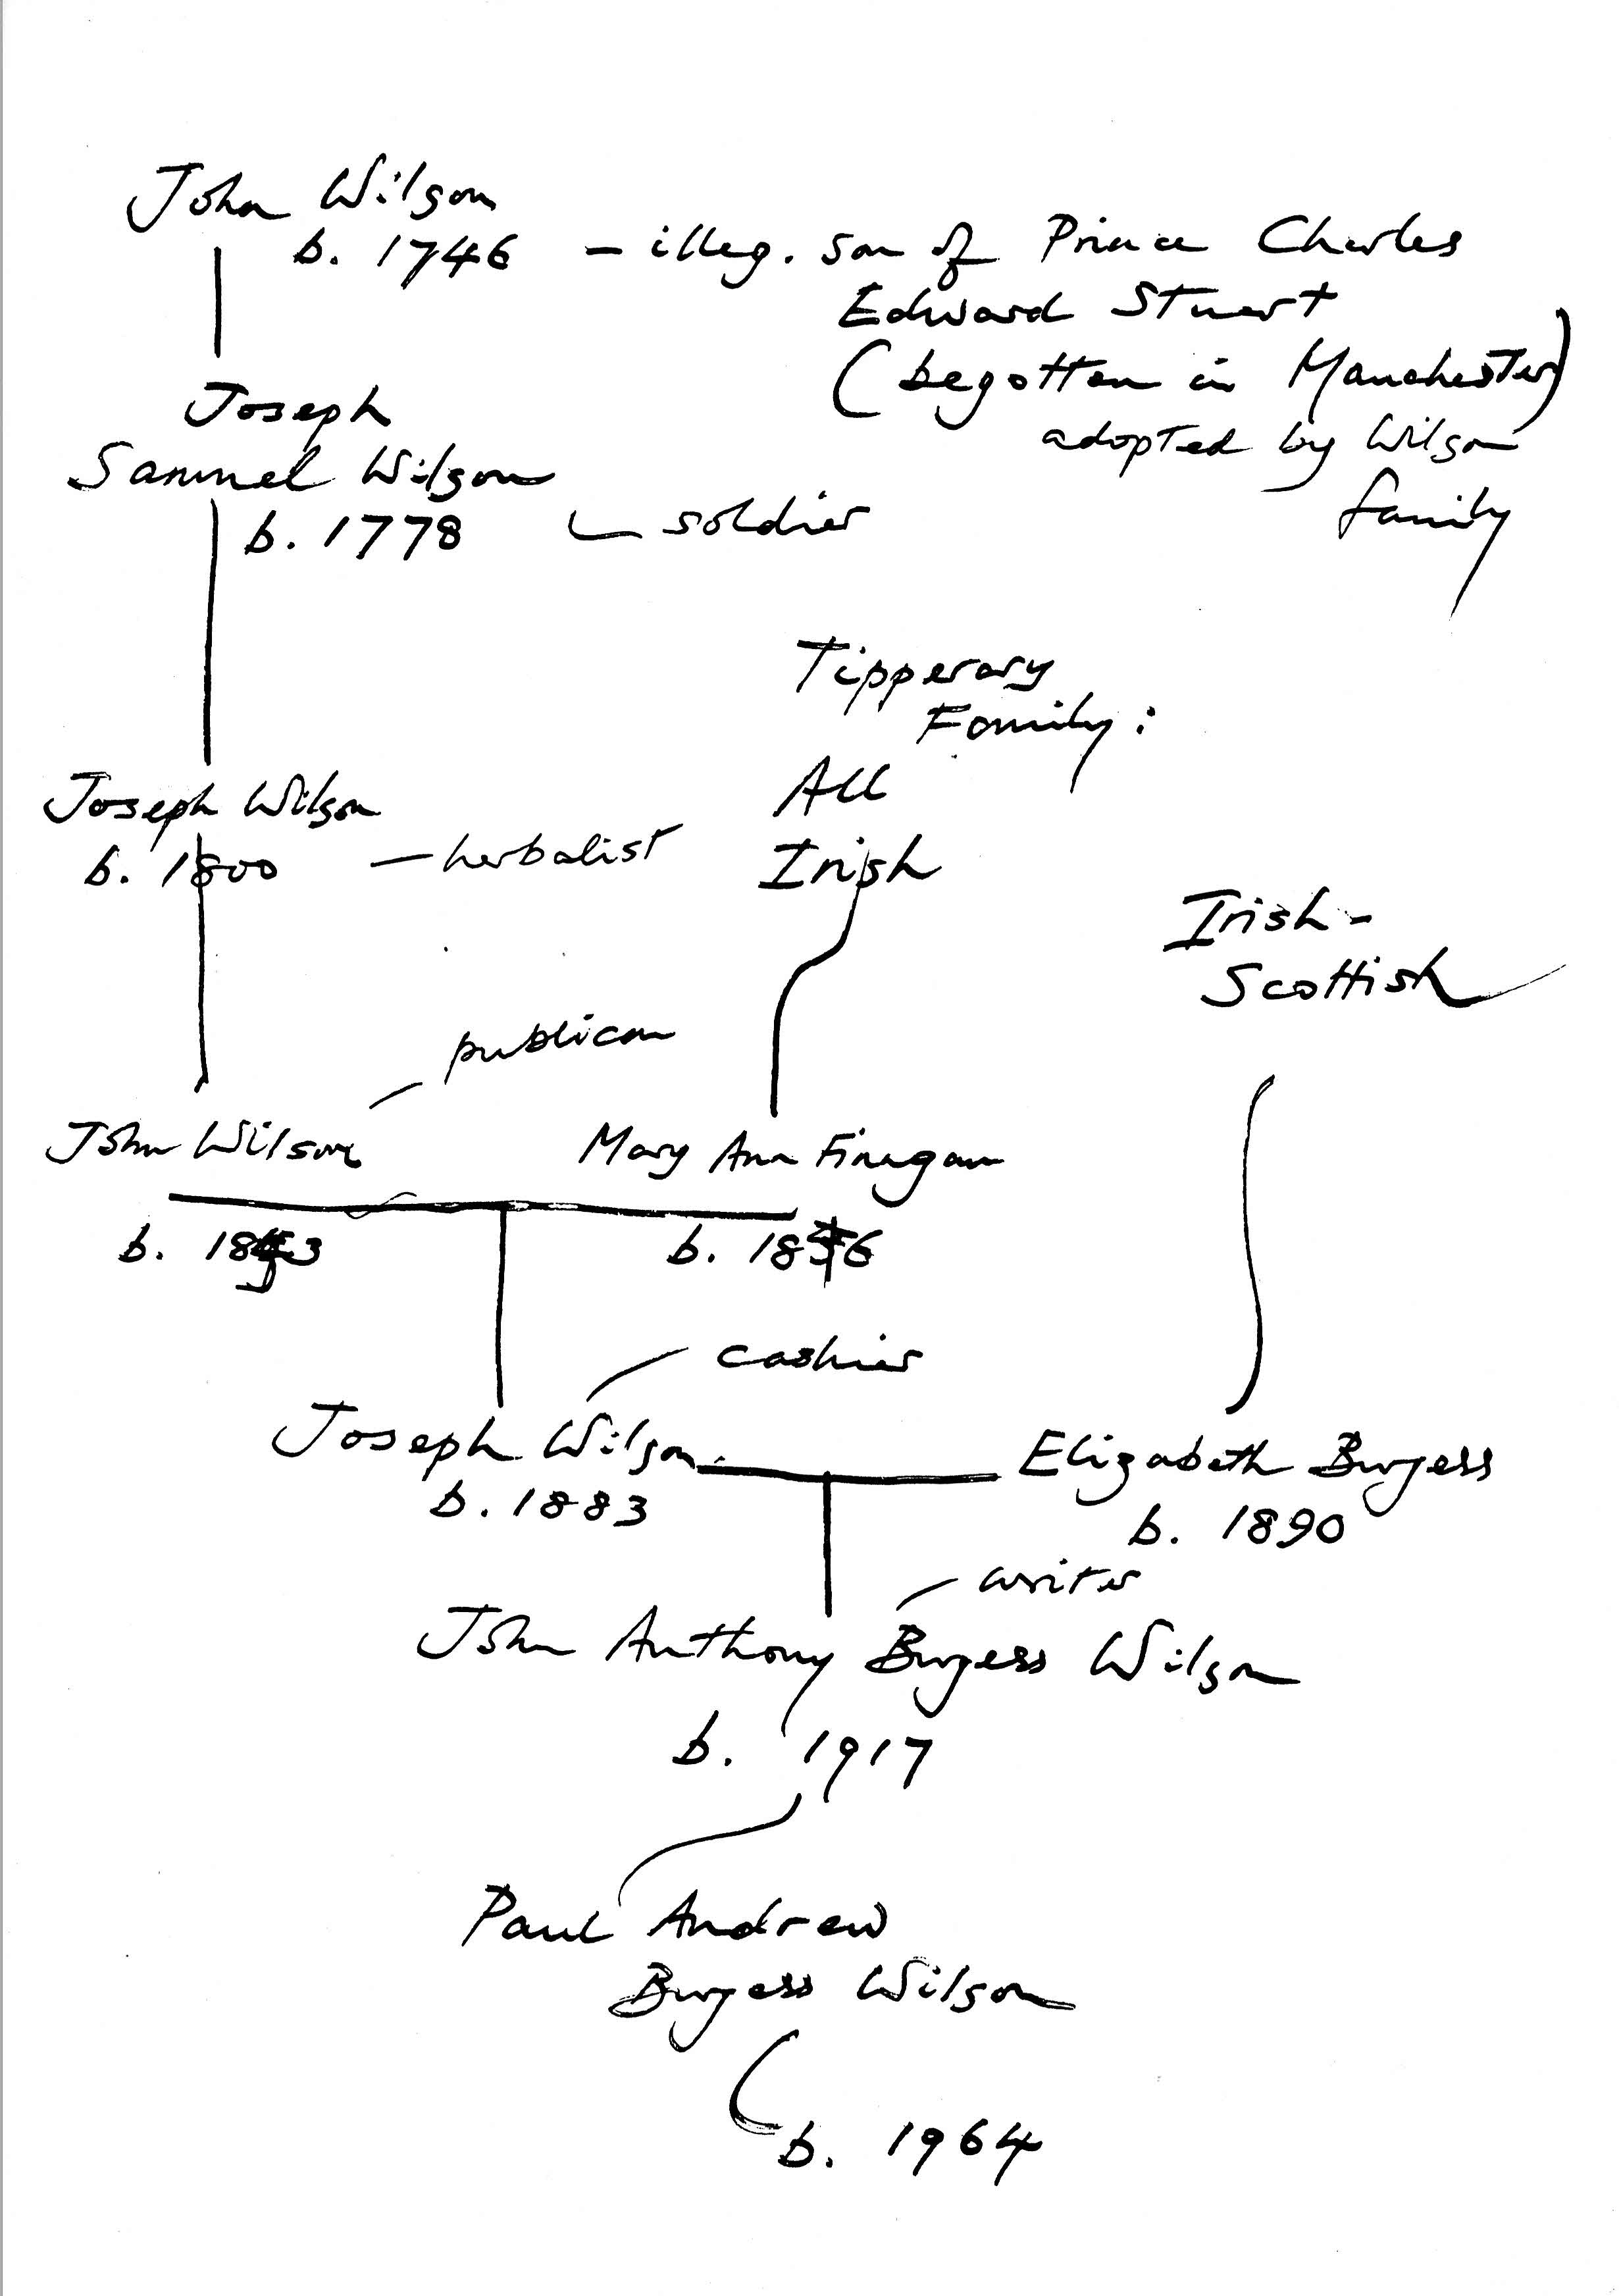 John Wilson
b. 1746 – illeg. son of Prince Charles
Edward Stuart
(begotten in Manchester)
adopted by Wilson
family
Joseph
Samuel Wilson
b. 1778 – soldier
Tipperary
Family:
All
Irish
Joseph Wilson
b. 1800 – herbalist
Irish-
Scottish
publican
John Wilson
Mary Ann Finegan
b.
b.
cashier
Joseph Wilson
b. 1883
Elizabeth Burgess
b. 1890
writer
John Anthony Burgess Wilson
b. 1917
Paul Andrew
Burgess Wilson
b. 1964